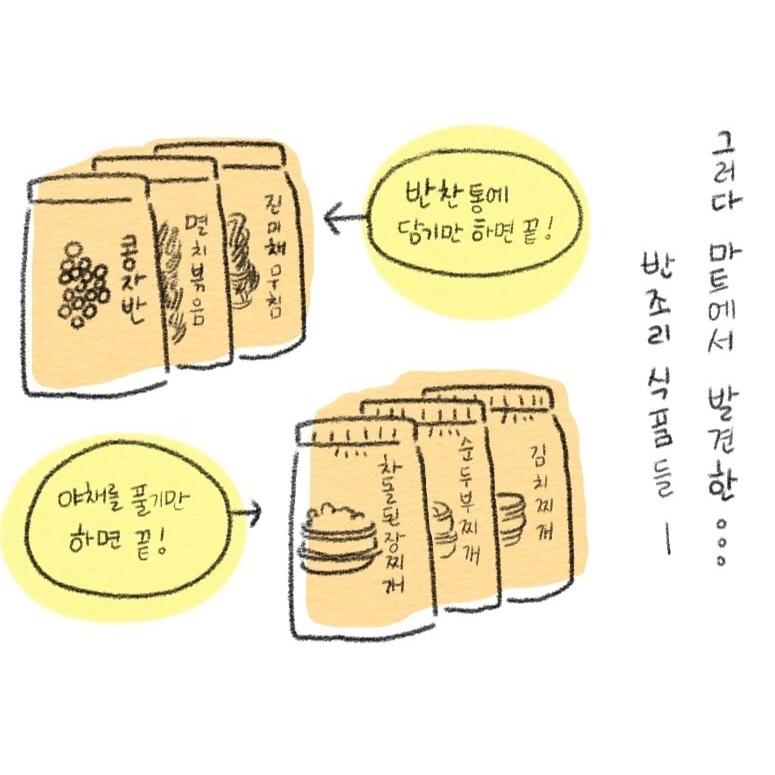 그러다 마트에서 발견한...
반조리 식품들 -
반찬통에
담기만 하면 끝!
콩자반
멸치볶음
진미채무침
야채를 풀기만
하면 끝!
차돌된장찌개
순두부찌개
김치찌개